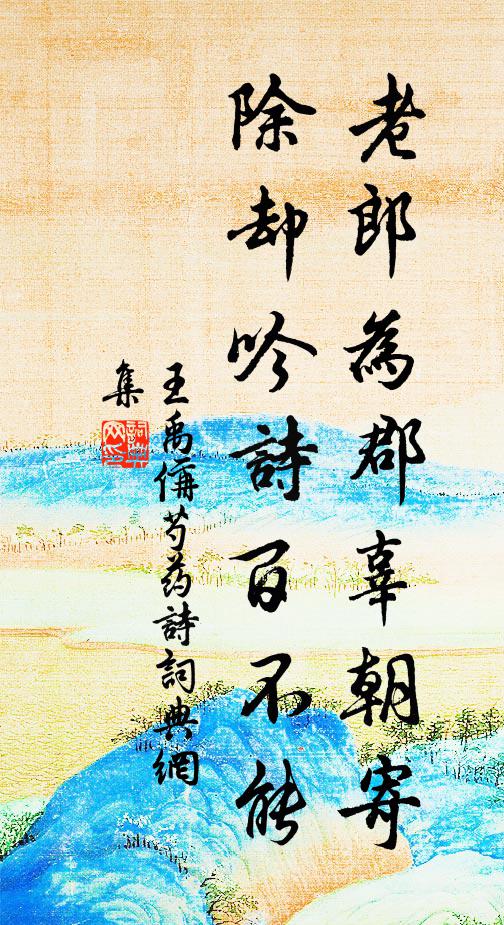 老郎為郡辜朝寄
除却吟詩百不能
王禹偁芍药詩詞典網
集